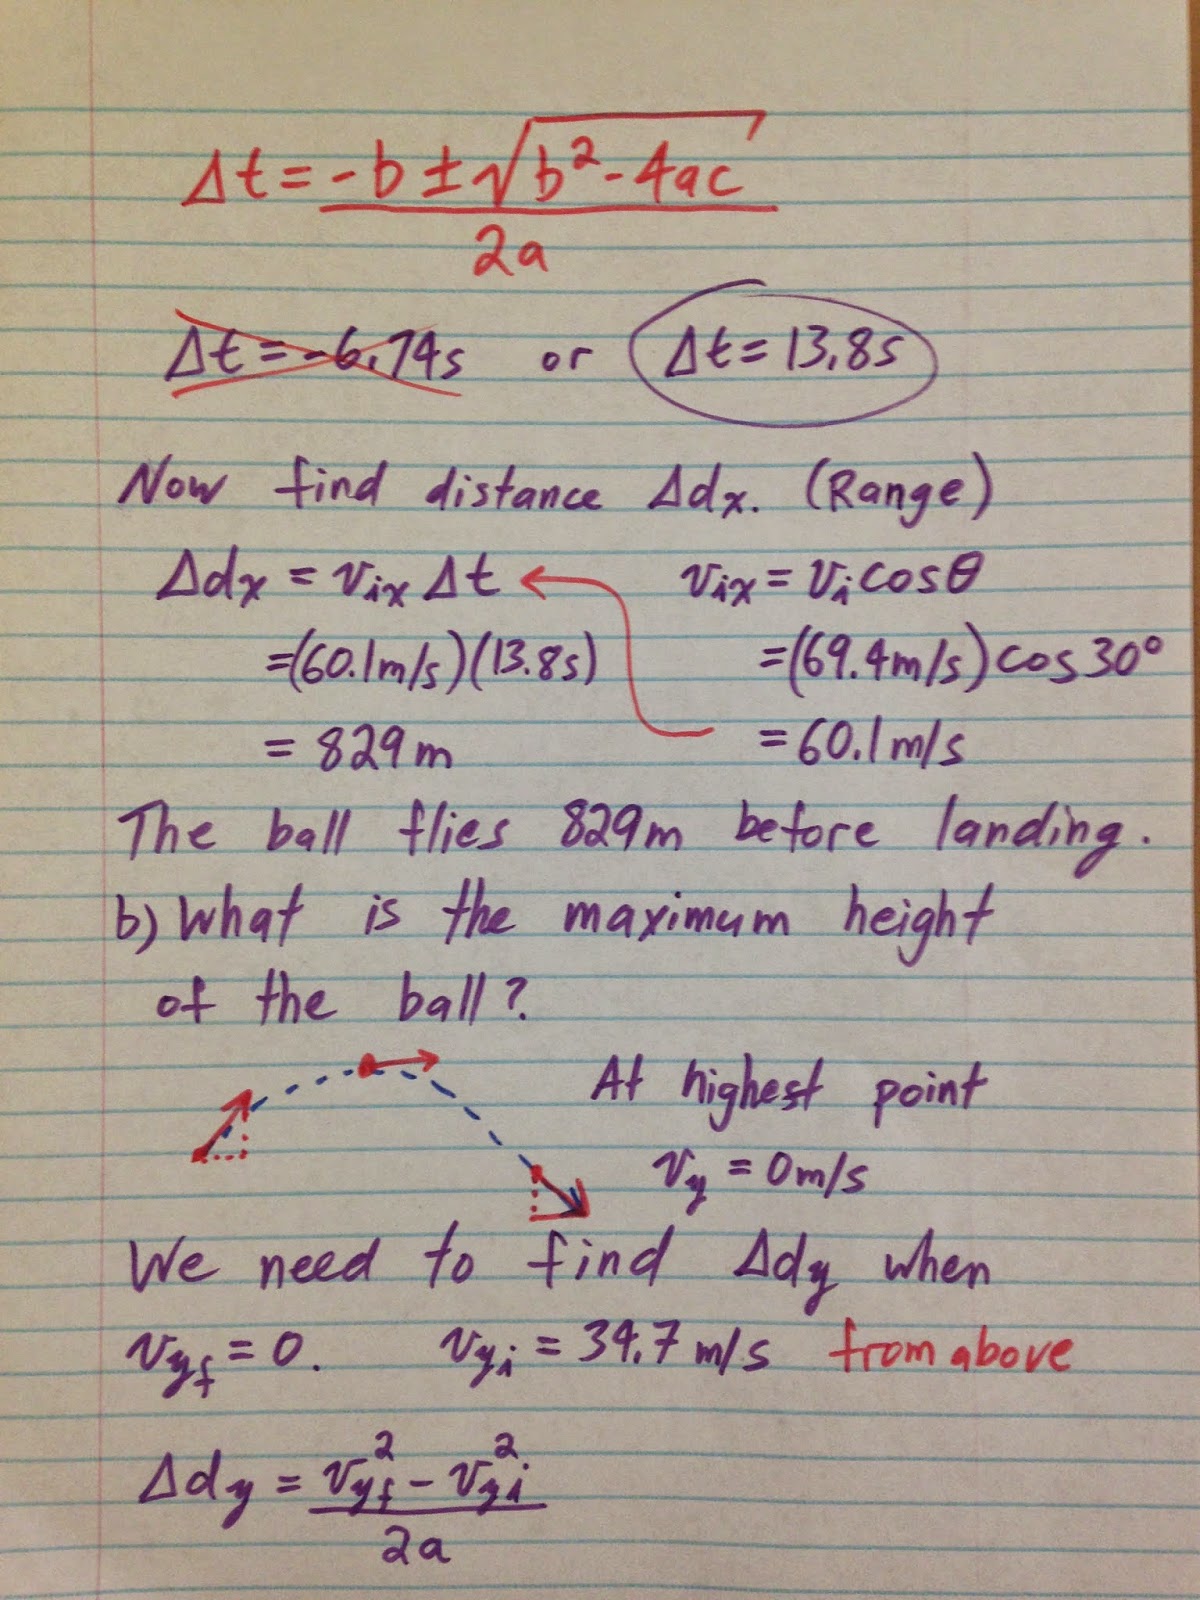 Δt = -b ± √b² - 4ac
2a
Δt = -6.74s or Δt = 13.8s
Now find distance Δdx. (Range)
Δdx = vix Δt vix = vi cosθ
=(60.1m/s)(13.8s) =(69.4m/s)cos30°
= 829m = 60.1m/s
The ball flies 829m before landing.
b) What is the maximum height
of the ball?
At highest point
vy = 0m/s
We need to find Δdy when
vyf = 0. vyi = 34.7 m/s from above
Δdy = vyf² - vyi²
2a